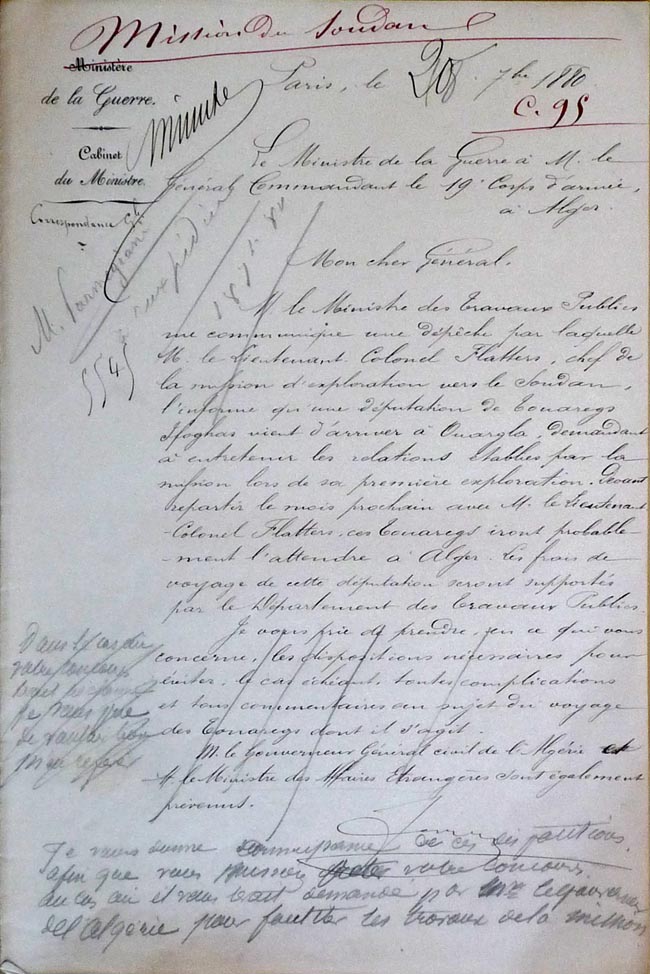 Mission du Soudan
Ministère
de la Guerre.
Cabinet
du Ministre.
Correspondance Gle
Minute
Paris, le 20 7bre 1880
C. 95
Le Ministre de la Guerre à M. le
Général Commandant le 19e Corps d'armée,
à Alger.
5545
expédié
Mon cher Général.
M. le Ministre des Travaux Publics
me communique une dépêche par laquelle
M. le Lieutenant Colonel Flatters, chef de
la mission d'exploration vers le Soudan,
l'informe qu'une députation de Touaregs
Ifoghas vient d'arriver à Ouargla, demandant
à entretenir les relations établies par la
mission lors de sa première exploration. Devant
repartir le mois prochain avec M. le Lieutenant-
Colonel Flatters, ces Touaregs iront probable-
ment l'attendre à Alger. Les frais de
voyage de cette députation seront supportés
par le Département des Travaux Publics.
Je vous prie de prendre, en ce qui vous
concerne, les dispositions nécessaires pour
éviter, le cas échéant, toutes complications
et tous commentaires au sujet du voyage
des Touaregs dont il s'agit.
M. le Gouverneur Général civil de l'Algérie et
M. le Ministre des Affaires Etrangères sont également
prévenus.
Dans le cas où
votre concours
je vous prie
de vouloir bien
m'en référer
Je vous donne connaissance de ces dispositions,
afin que vous puissiez votre concours
au cas où il vous serait demandé par le gouverneur
de l'Algérie pour faciliter les travaux de la mission